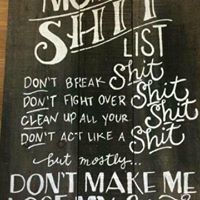 SHIT
LIST
DON'T BREAK Shit
DON'T FIGHT OVER Shit
CLEAN UP ALL YOUR Shit
DON'T ACT LIKE A Shit
but mostly...
DON'T MAKE ME
LOSE MY